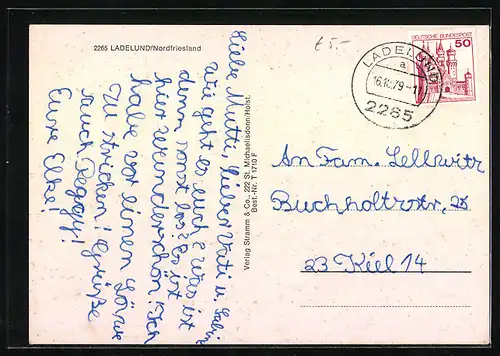 2265 LADELUND/Nordfriesland
£ 5.-
DEUTSCHE BUNDESPOST
50
LADELUND
a
16.10.79-1
2265
Liebe Mutti, lieber Vati u. Gabi
Wie geht es euch? Was ist
denn sonst los? Es ist
hier wunderschön. Ich
habe vor einen
zu stricken! Grüße
auch Peggy!
Eure Elke!
Verlag Stramm & Co., 222 St. Michaelisdonn/Holst.
Best.-Nr. T 1710 F
An Fam. Lellwitz
Buchholtzstr.
23 Kiel 14